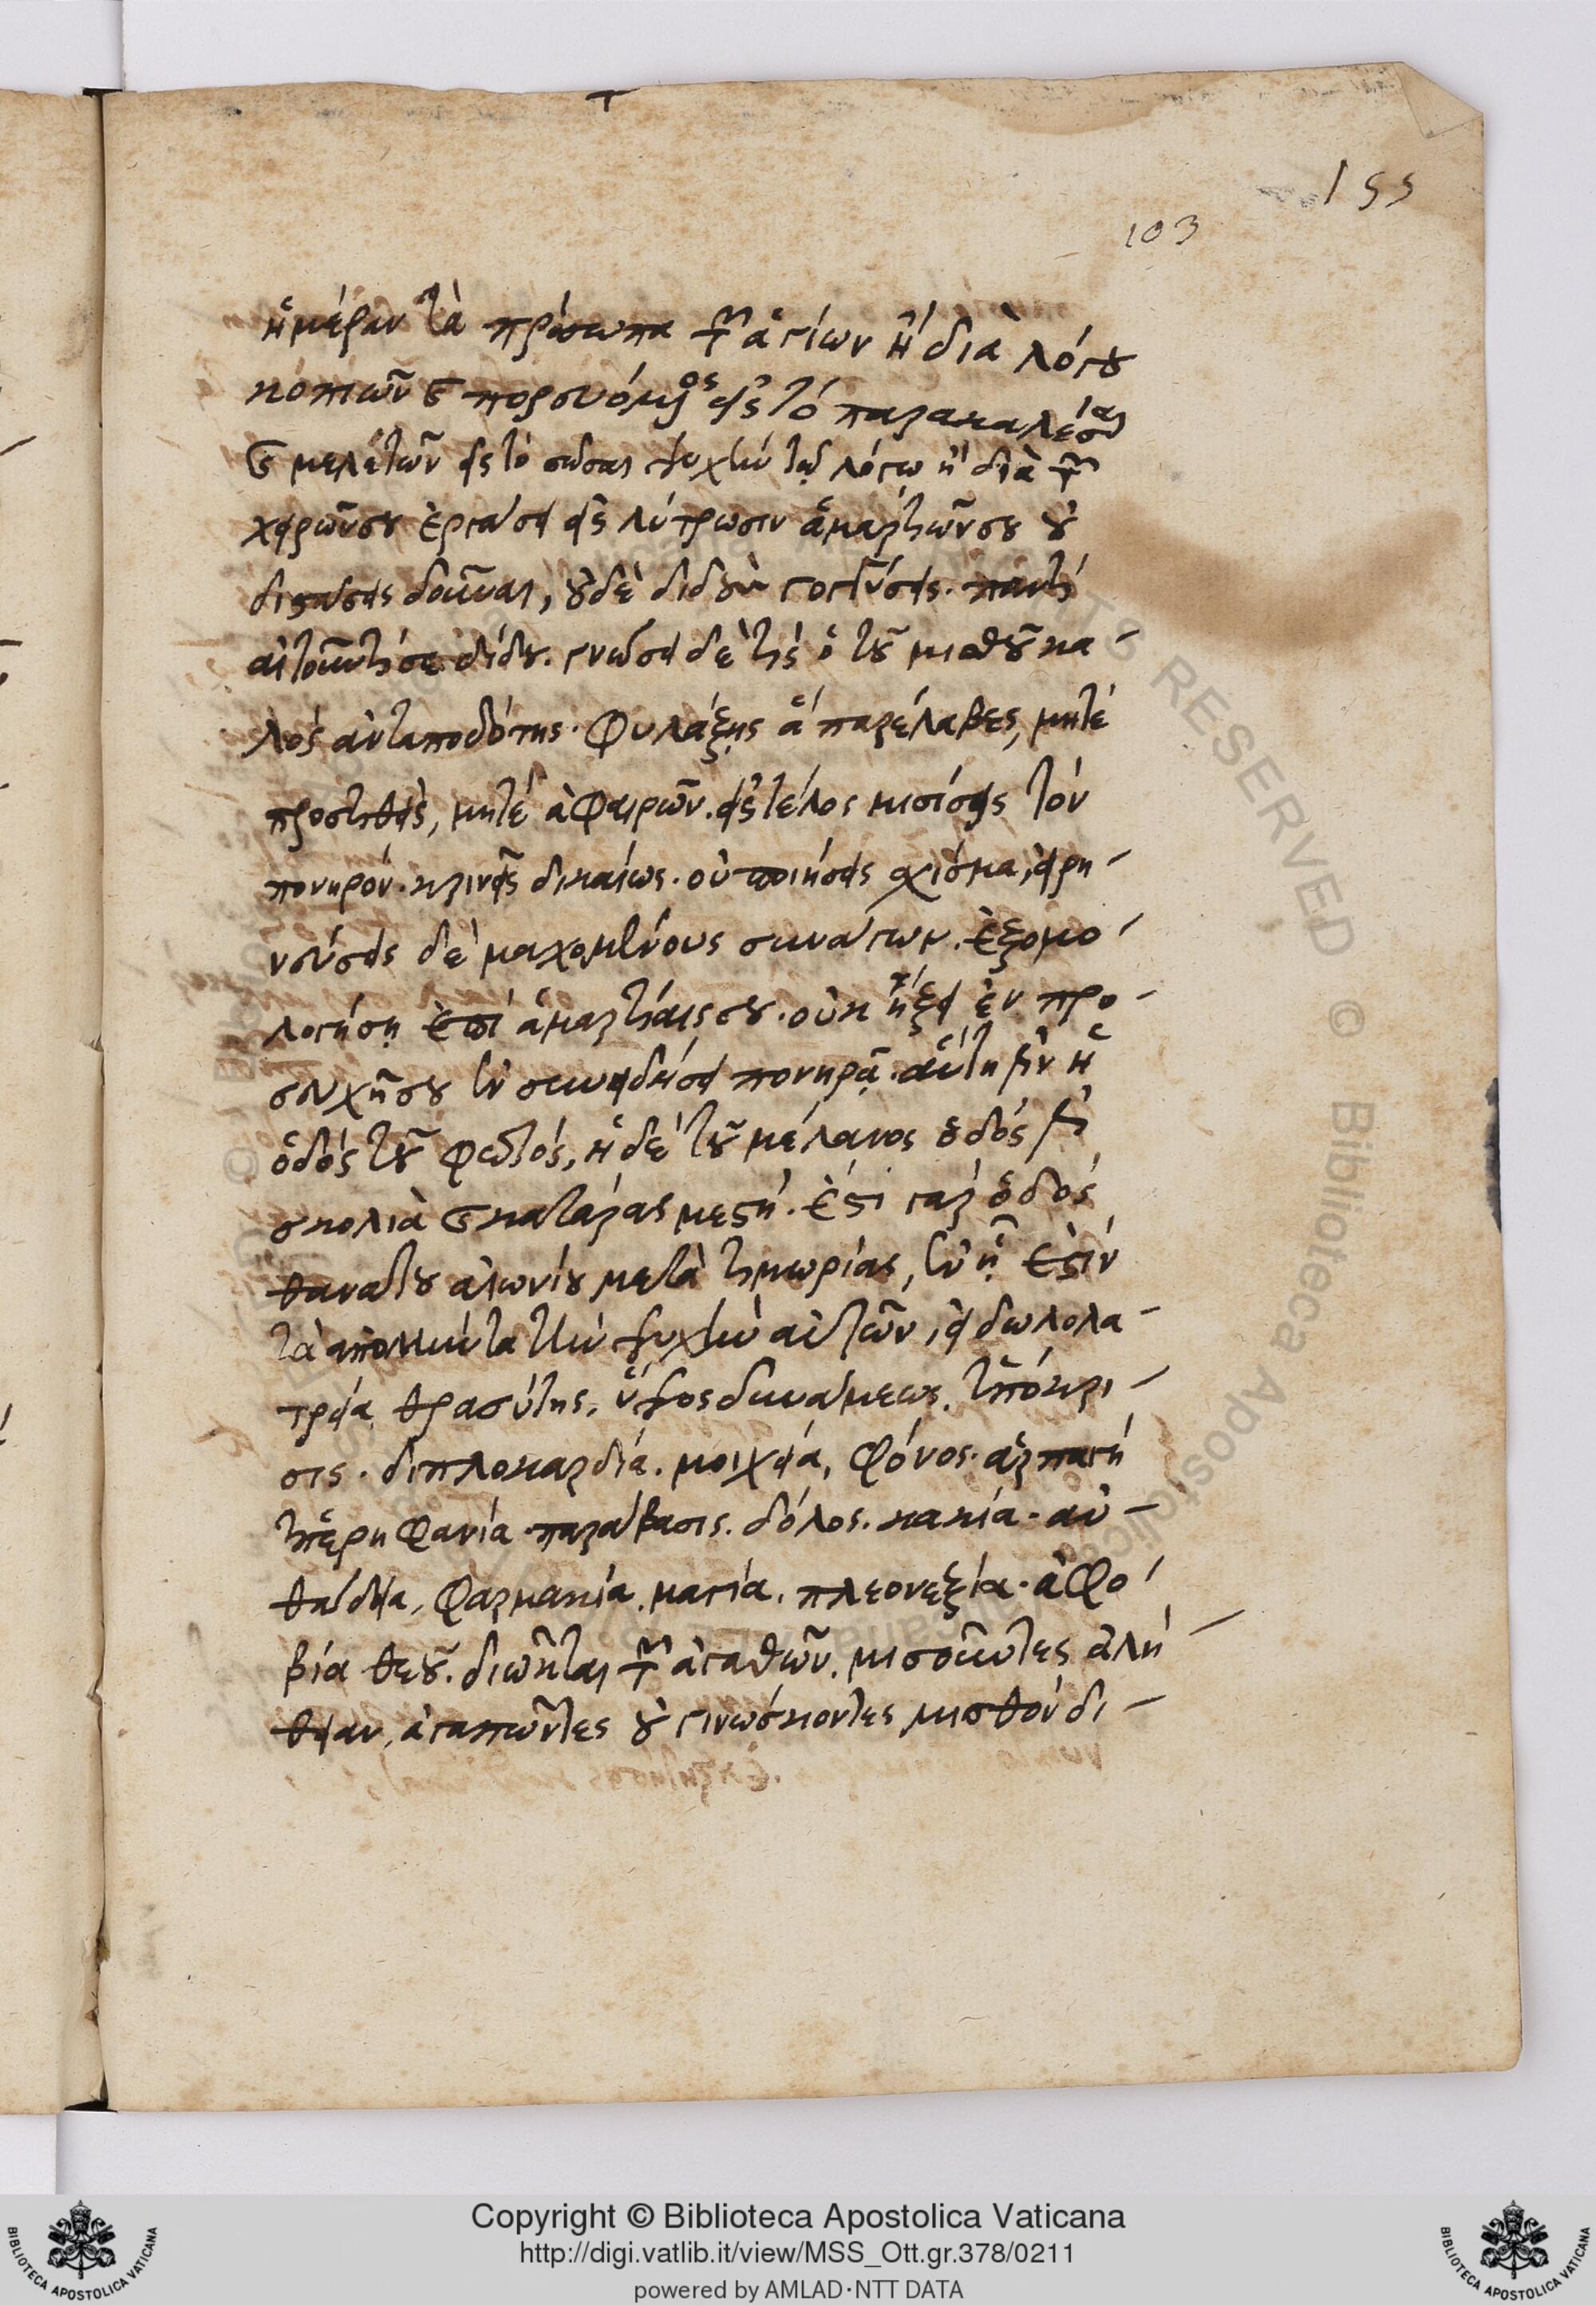 155
103
ἡμέραν τὰ πρόσωπα τῶν ἁγίων ἢ διὰ λόγου
κοπιῶν καὶ πορευόμενος εἰς τὸ παρακαλέσαι
καὶ μελετῶν εἰς τὸ σῶσαι ψυχὴν τῷ λόγῳ ἢ διὰ τῶν
χειρῶν σου ἐργάσῃ εἰς λύτρωσιν ἁμαρτιῶν σου οὐ
διστάσεις δοῦναι, οὐδὲ διδοὺς γογγύσεις. παντὶ
αἰτοῦντί σε δίδου. γνώσῃ δὲ τίς ὁ τοῦ μισθοῦ κα-
λός ἀνταποδότης. φυλάξῃς ἃ παρέλαβες, μήτε
προστιθεὶς, μήτε ἀφαιρῶν. εἰς τέλος μισίσεις τὸν
πονηρόν. κρινεῖς δικαίως. οὐ ποιήσεις σχίσμα, εἰρη-
νεύσεις δὲ μαχομένους συναγων. ἐξομο-
λογήσῃ ἐπὶ ἁμαρτίαις σου. οὐχ ἥξει ἐν προ-
σευχῇ σου ἐν συνειδήσει πονηρᾷ. αὕτη ἐστὶν ἡ
ὁδὸς τοῦ φωτός, ἡ δὲ τοῦ μέλανος ὁδός ἐστι
σκολιὰ καὶ κατάρας μεστή. ἔστι γὰρ ὁδὸς
θανάτου αἰωνίου μετὰ τιμωρίας, ἐν ᾗ ἐστὶν
τὰ ἀπολλύντα τὴν ψυχὴν αὐτῶν, εἰδωλολα-
τρεία, θρασύτης, ὕψος δυνάμεως, ὑπόκρι-
σις. διπλοκαρδία. μοιχεία, φόνος. ἁρπαγή
ὑπερηφανία. παράβασις. δόλος. κακία. αὐ-
θάδεια, φαρμακία. μαγία. πλεονεξία. ἀφο-
βία θεοῦ. διῶκται τῶν ἀγαθῶν. μισοῦντες ἀλή-
θειαν, ἀγαπῶντες οὐ γινώσκοντες μισθὸν δι-
Copyright © Biblioteca Apostolica Vaticana
http://digi.vatlib.it/view/MSS_Ott.gr.378/0211
powered by AMLAD·NTT DATA